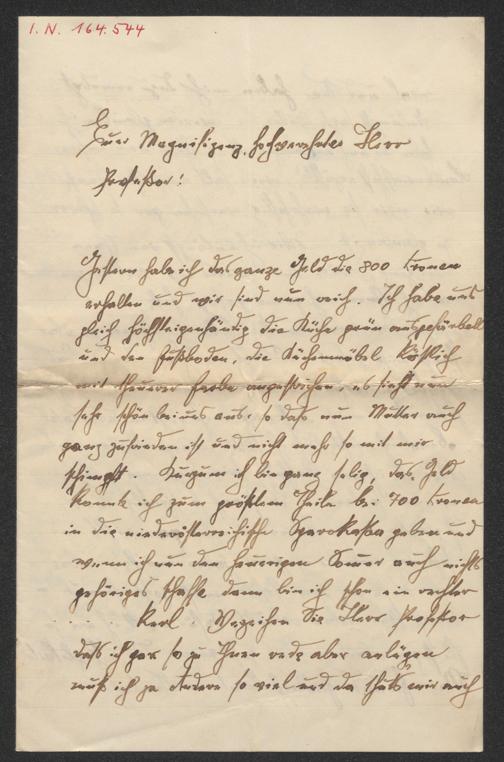 I. N. 164.544
Euer Magnifizenz, hochverehrter Herr
Professor!
Gestern habe ich das ganze Geld die 800 Kronen
erhalten und wir sind nun reich. Ich habe uns
gleich höchsteigenhändig die Küche grün ausgefärbelt
und den Fußboden, die Küchenmöbel köstlich
mit theurer Farbe angestrichen, es sieht nun
sehr schön bei uns aus. so daß nun Mutter auch
ganz zufrieden ist und nicht mehr so mit mir
schimpft. Kurzum ich bin ganz selig, das Geld
konnte ich zum größten Theile bei 700 Kronen
in die niederösterreichische Sparokaßa geben und
wenn ich nun den heurigen Somer auch nichts
gehöriges schaffe dann bin ich schon ein rechter
Kerl. Verzeihen Sie Herr Professor
daß ich gar so zu Ihnen rede aber anlügen
muß ich ja Andere so viel und da thäts mir auch